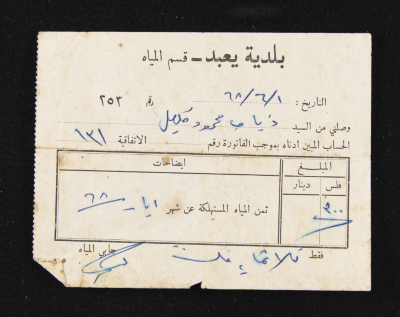 بلدية يعبد ـ قسم المياه
التاريخ : ٦٨/٦/١ رقم ٢٥٣
وصلني من السيد ذياب محمود خليل
الحساب المبين ادناه بموجب الفاتورة رقم الاتفاقية ١٣١
المبلغ ايضاحات
فلس دينار
٣٠٠ ثمن المياه المستهلكة عن شهر ايار ٦٨
فقط ثلاثماية فلس جابي المياه